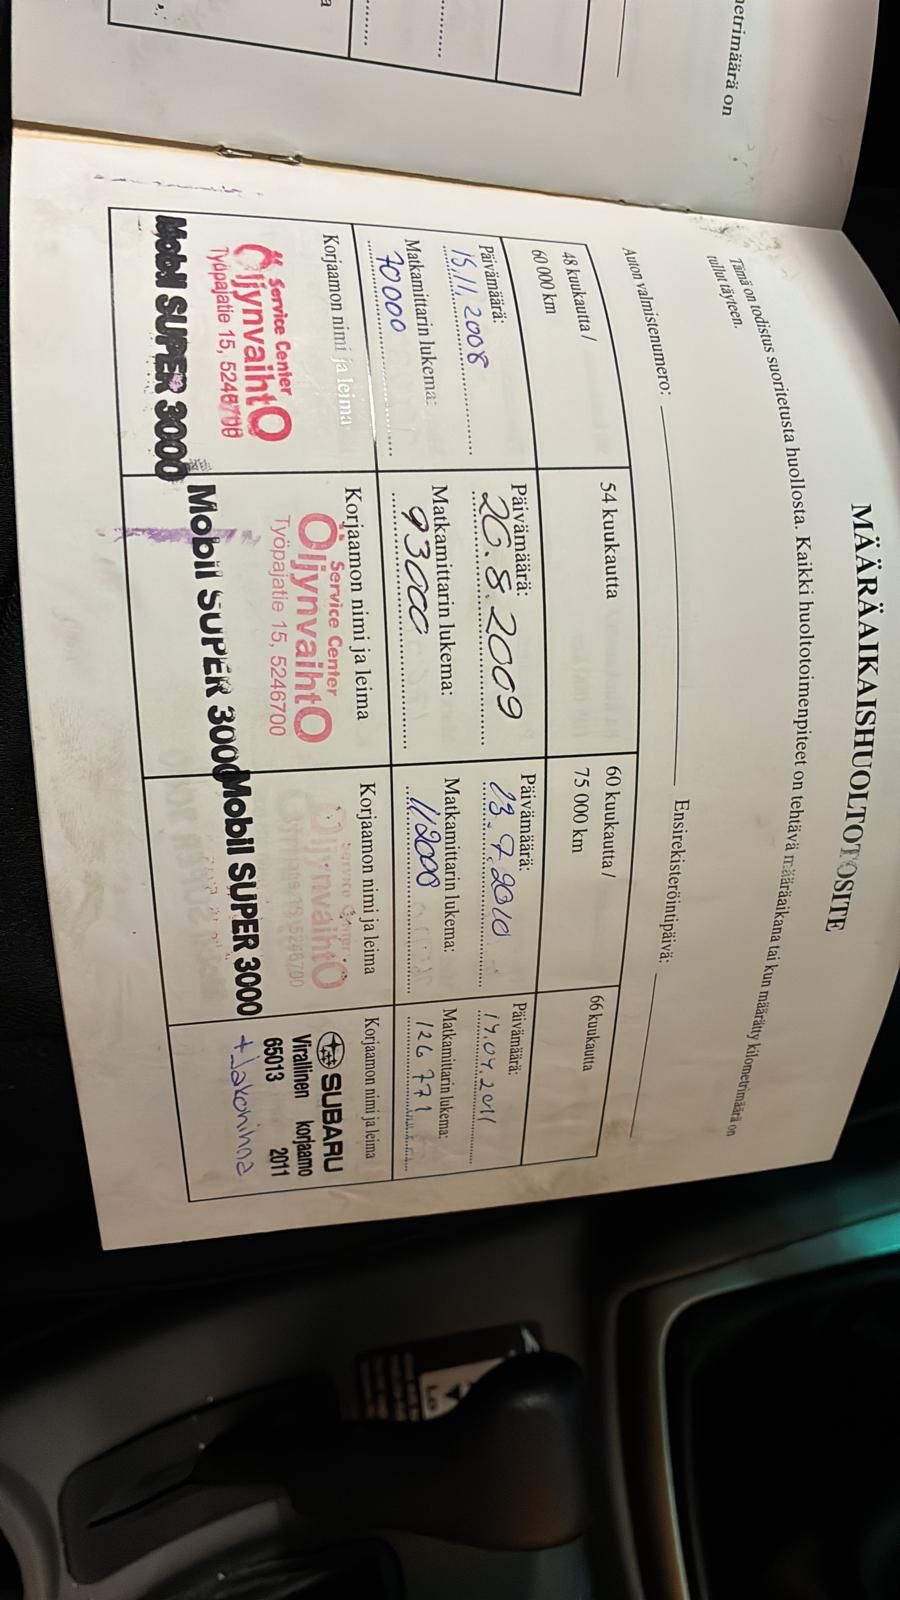 etrimäärä on
MÄÄRÄAIKAISHUOLTOTOSITE
Tämä on todistus suoritetusta huollosta. Kaikki huoltotoimenpiteet on tehtävä määräaikana tai kun määrätty kilometrimäärä on
tullut täyteen.
Auton valmistenumero:
Ensirekisteröintipäivä:
48 kuukautta /
60 000 km
Päivämäärä:
15.11.2008
Matkamittarin lukema:
70000
Korjaamon nimi ja leima
Service Center
ÖljynvaihtO
Työpajatie 15, 5246700
Mobil SUPER 3000
54 kuukautta
Päivämäärä:
26.8.2009
Matkamittarin lukema:
93000
Korjaamon nimi ja leima
Service Center
ÖljynvaihtO
Työpajatie 15, 5246700
Mobil SUPER 3000
60 kuukautta /
75 000 km
Päivämäärä:
13.7.2010
Matkamittarin lukema:
112000
Korjaamon nimi ja leima
Service Center
ÖljynvaihtO
Mobil SUPER 3000
66 kuukautta
Päivämäärä:
19.04.2011
Matkamittarin lukema:
126 771
Korjaamon nimi ja leima
SUBARU
Virallinen korjaamo
65013 2011
+ Jakohihna